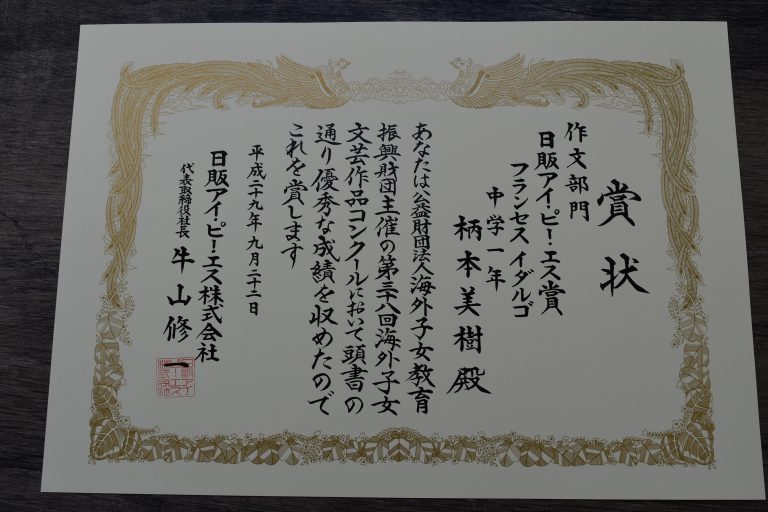 賞状
作文部門
日販アイ・ピー・エス賞
フランセスイダルゴ
中学一年
柄本美樹殿
あなたは公益財団法人海外子女教育
振興財団主催の第三十八回海外子女
文芸作品コンクールにおいて頭書の
通り優秀な成績を収めたので
これを賞します
平成二十九年九月二十二日
日販アイ・ピー・エス株式会社
代表取締役社長
牛山修一